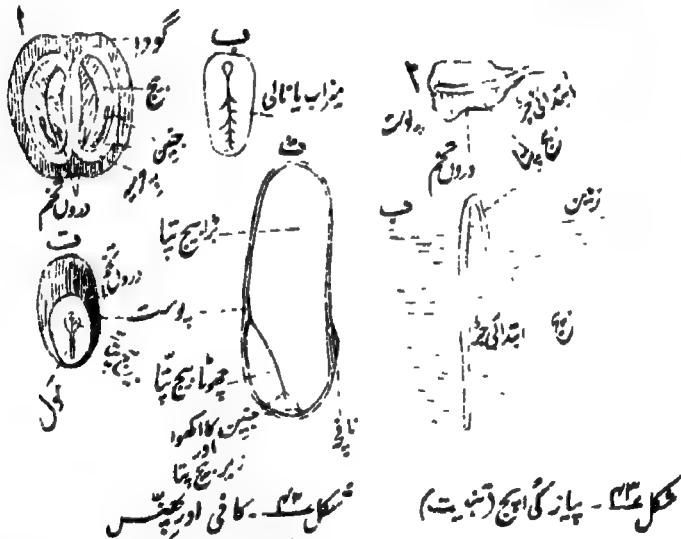 ا
گودا
بیج
جنین
درون تخم
ب
میزاب یا نالی
ت
درون تخم
پوست
بیج پتا
ث
بڑا بیج پتا
چھوٹا بیج پتا
جنین کا اکھوا
اور
زیر بیج پتا
ناف
شکل ۴۲ - کافی اور
ا
ابتدائی جڑ
پوست
درون تخم
بیج پتا
ب
زمین
بیج
ابتدائی جڑ
شکل ۴۳ - پیاز کی اپج (تنبیت)